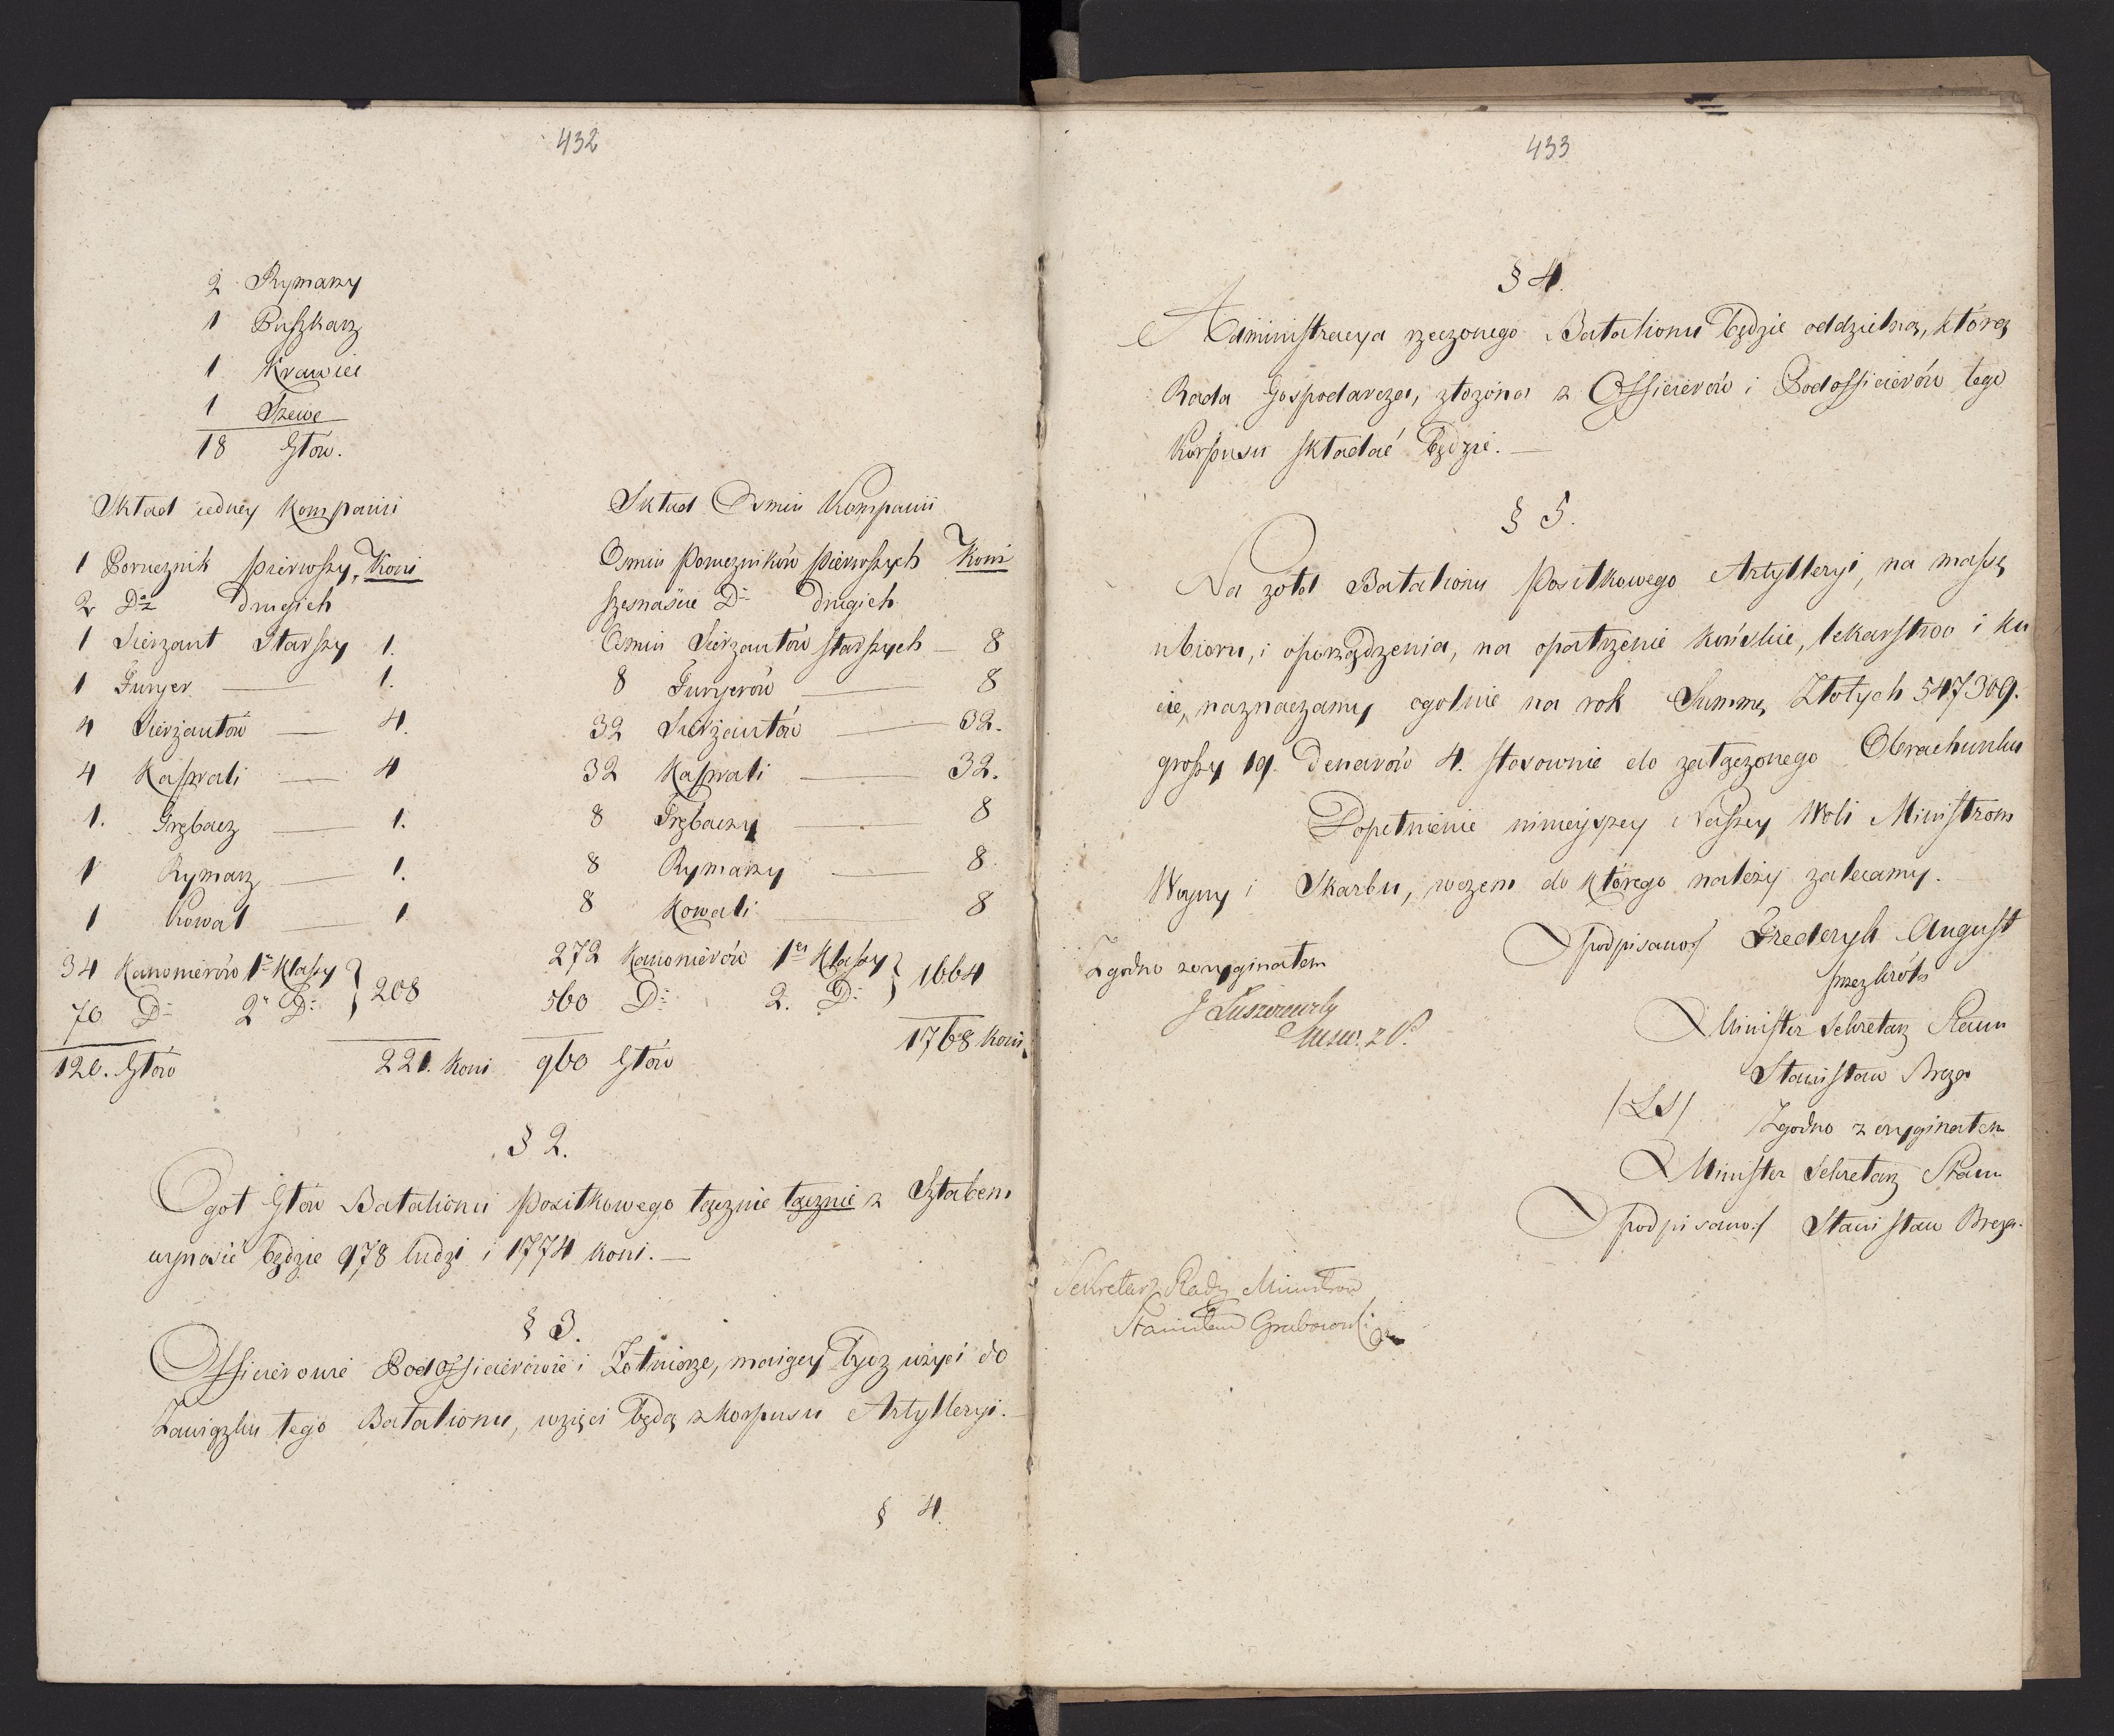 432
2 Rymarzy
1 Puszkarz
1 Krawiec
1 Szewc
18 Głów.
Skład iedney Kompanii
1 Porucznik pierwszy, Koni
2 Do drugich
1 Sierżant Starszy 1.
1 Furyer — 1.
4 Sierżantów — 4.
4 Kaprali — 4
1. Trębacz — 1.
1 Rymarz — 1.
1 Kowal — 1
34 Kanonierów 1ej Klassy } 208
70 Do 2ej Do
120. Głów 221. Koni
Skład Osmiu Kompanii
Osmiu Poruczników pierwszych Koni
szesnaście Do drugich
Osmiu Sierżantów starszych — 8
8 Furyerów — 8
32 Sierżantów — 32.
32 Kaprali — 32.
8 Trębaczy — 8
8 Rymarzy — 8.
8 Kowali — 8
272 Kanonierów 1ej Klassy } 1664
560 Do 2. Do
960 Głów 1768 Koni,
§ 2.
Ogół Głów Batalionu posiłkowego łącznie łącznie z Sztabem
wynosić będzie 978 ludzi i 1774 koni. —
§ 3.
Officierowie Podofficierowie i Żołnierze, maiący bydz użyci do
Zawiązku tego Batalionu, wzięci będą z korpusu Artylleryi. —
§ 4.
433
§ 4.
Administracya rzeczonego Batalionu będzie oddzielną, którą
Rada Gospodarcza, złożona z Officierów i Podofficierów tego
Korpusu składać będzie. —
§ 5.
Na żołd Batalionu Posiłkowego Artylleryi, na massę
ubioru, i oporządzenia, na opatrzenie końskie, lekarstwo i ku
cie, naznaczamy ogolnie na rok Summę Złotych 547309.
groszy 19. Denarów 4. stosownie do załączonego Obrachunku
Dopełnienie ninieyszey Naszey Woli Ministrom
Woyny i Skarbu, wczem do którego należy zalecamy.
/podpisano/ Frederyk August
przez Króla
Minister Sekretarz Stanu
Stanisław Breza
/LS/ Zgodno z oryginałem
Minister Sekretarz Stanu
/podpisano/ Stanisław Breza.
Zgodno z oryginałem
Sekretarz Rady Ministrów
Stanisław Grabowski